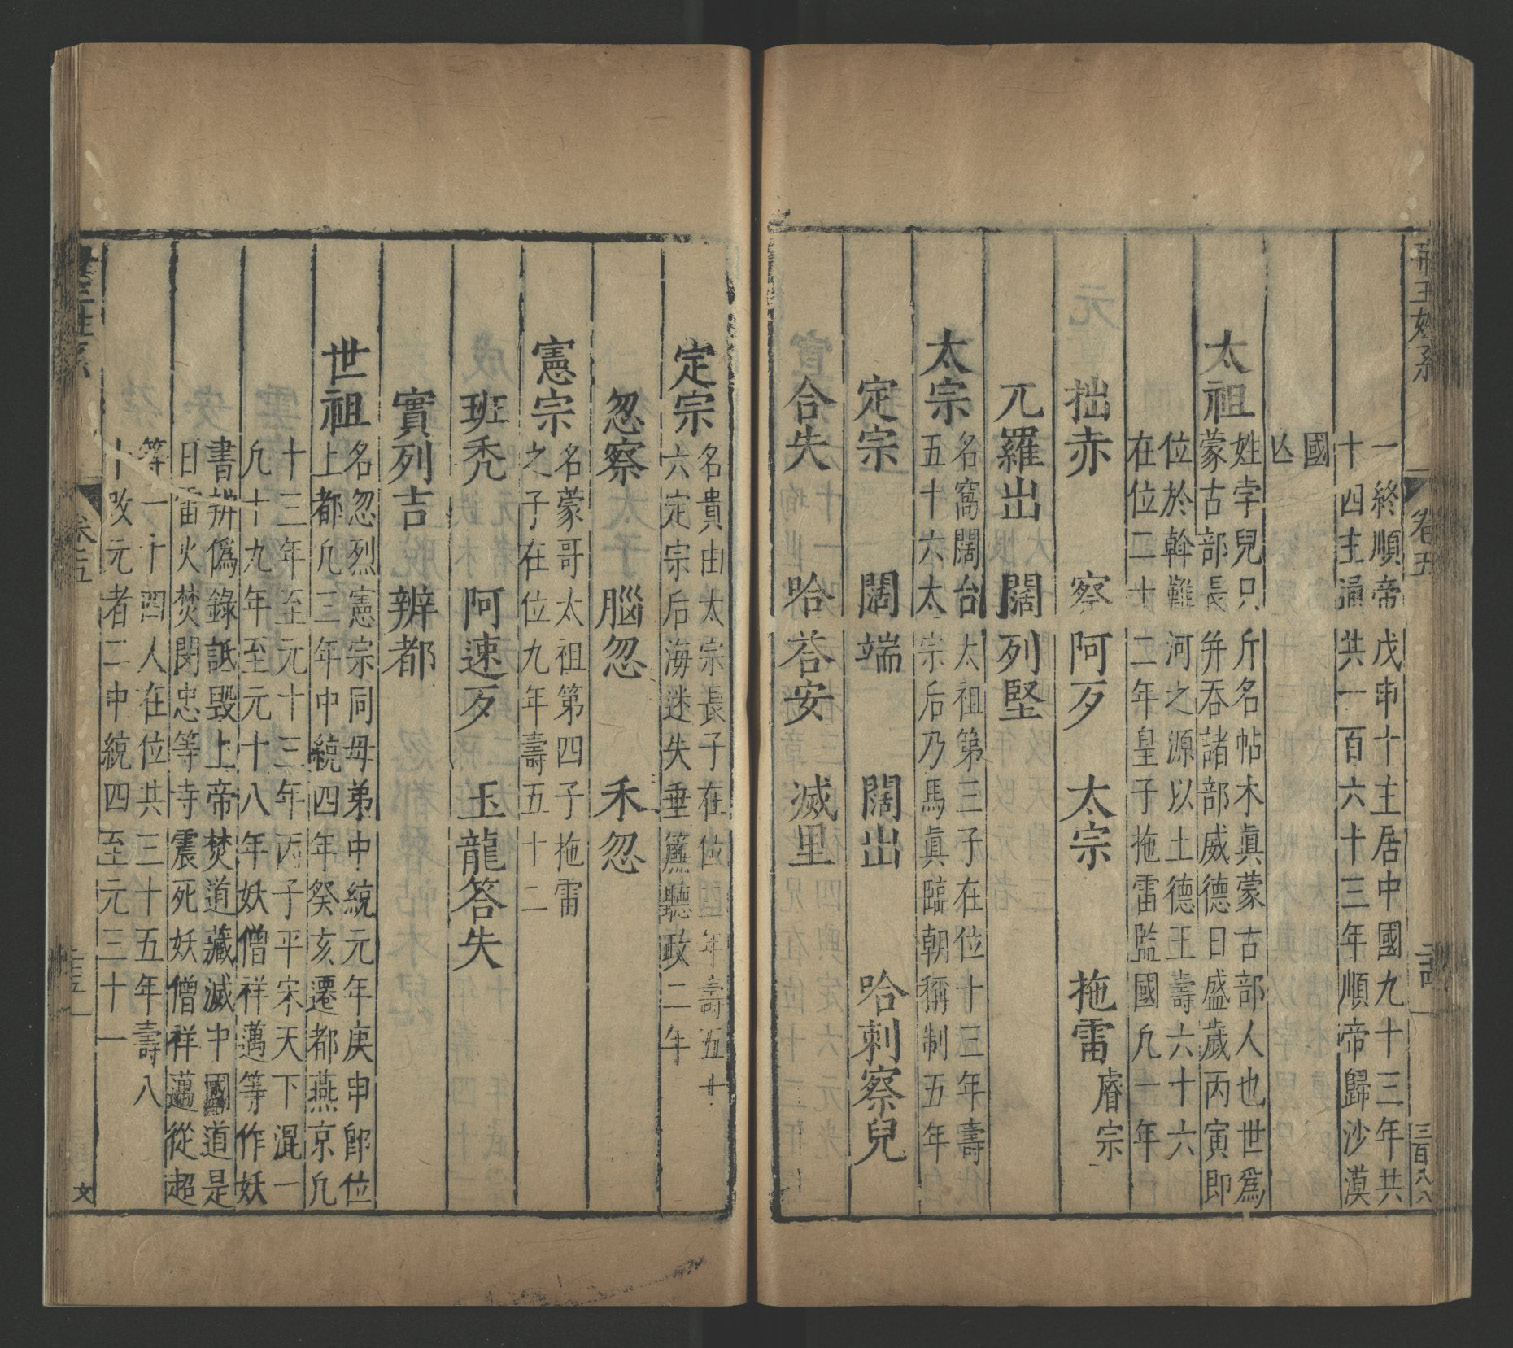 帝王姓系 卷五 三百八八
一終順帝戊申十主居中國九十三年共
十四主通共一百六十三年順帝歸沙漠
國
亾
太祖
姓孛兒只斤名帖木眞蒙古部人也世爲
蒙古部長并吞諸部威德日盛歲丙寅即
位於斡難河之源以土德王壽六十六
在位二十二年皇子拖雷監國九一年
拙赤 察阿歹 太宗 拖雷睿宗
兀羅出 闊列堅
太宗
名窩闊台太祖第三子在位十三年壽
五十六太宗后乃馬眞臨朝稱制五年
定宗 闊端 闊出 哈剌察兒
合失 哈荅安 滅里
定宗
名貴由太宗長子在位四年壽五十
六定宗后海迷失垂簾聽政二年
忽察 腦忽 禾忽
憲宗
名蒙哥太祖第四子拖雷
之子在位九年壽五十二
班禿 阿速歹 玉龍答失
實列吉 辨都
世祖
名忽烈憲宗同母弟中統元年庚申卽位
上都九三年中統四年癸亥遷都燕京九
十三年至元十三年丙子平宋天下混一
九十九年至元十八年妖僧祥邁等作妖
書辨僞錄詆毀上帝焚道藏滅中國道是
日雷火焚閔忠等寺震死妖僧祥邁從超
等一十四人在位共三十五年壽八
十改元者二中統四至元三十一
帝王姓系 卷五 文